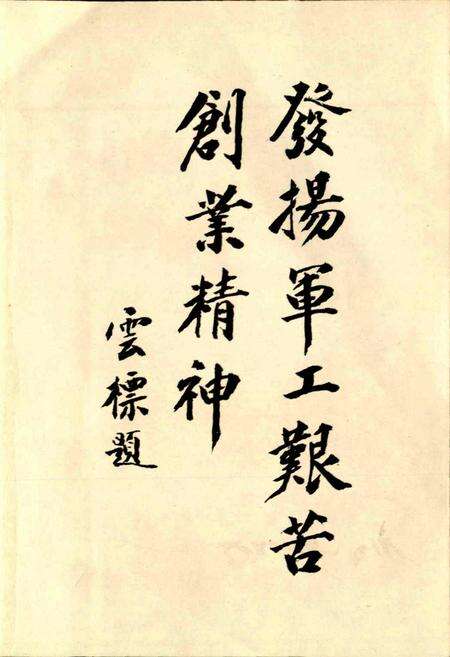 發揚軍工艱苦
創業精神
雲標題